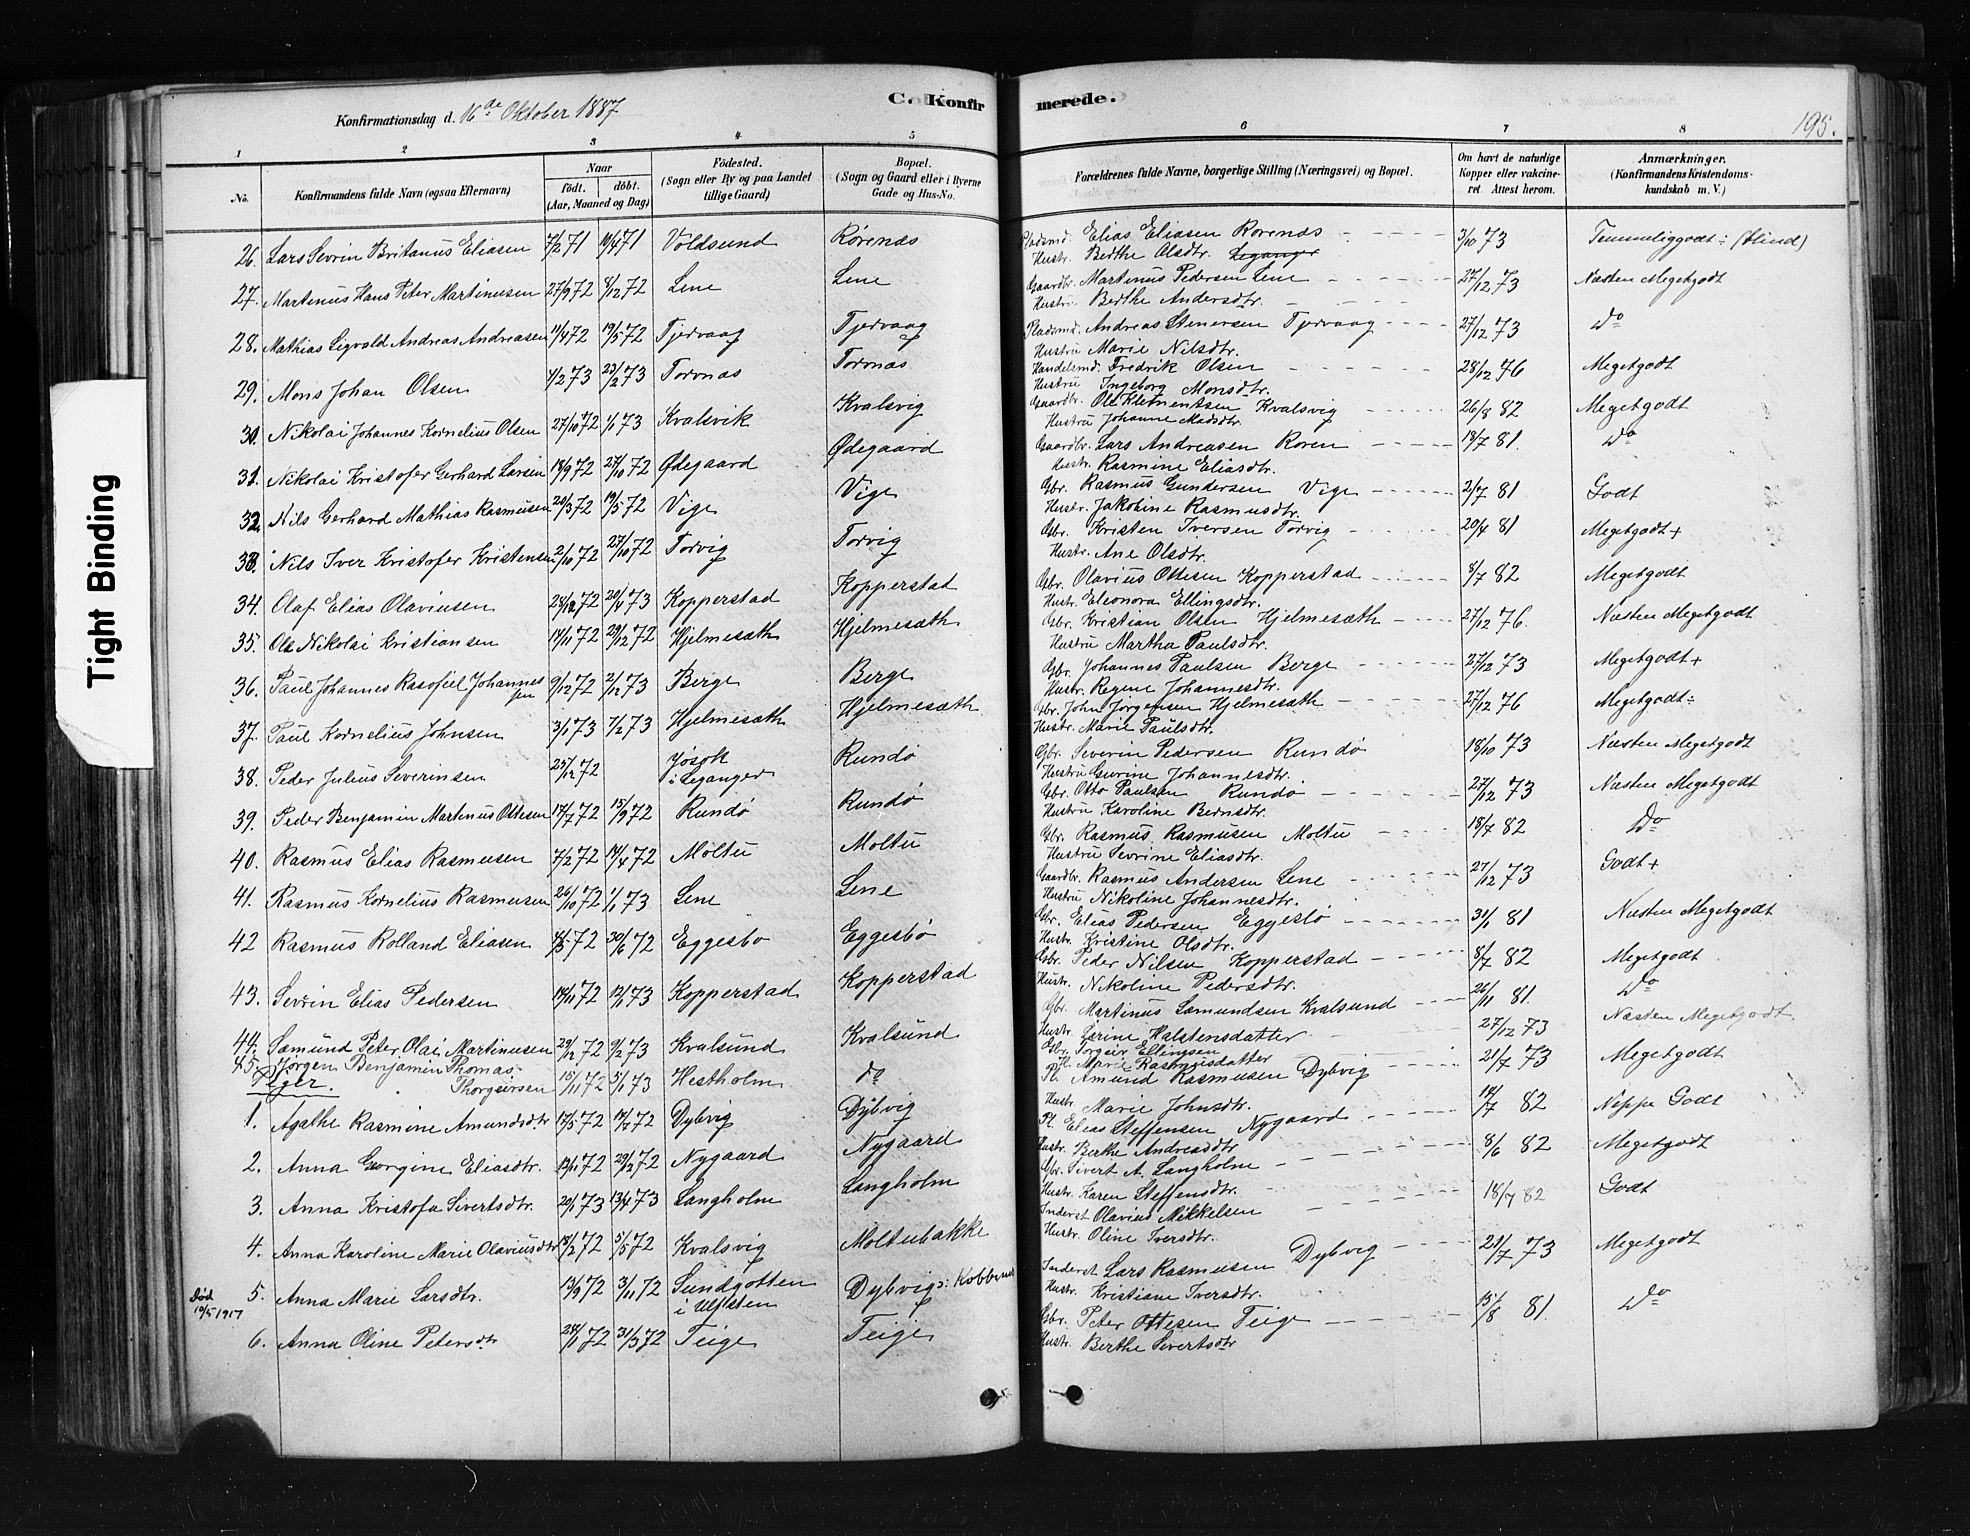 C. Konfirmerede.
195.
Konfirmationsdag d. 16de Oktober 1887
1 2 3 4 5 6 7 8
No. Konfirmandens fulde Navn (ogsaa Efternavn) Naar født. døbt. (Aar, Maaned og Dag) Fødested. (Sogn eller By og paa Landet tillige Gaard) Bopæl. (Sogn og Gaard eller i Byerne Gade og Hus-No. Forældrenes fulde Navne, borgerlige Stilling (Næringsvei) og Bopæl. Om havt de naturlige Kopper eller vakcineret. Attest herom. Anmærkninger. (Konfirmandens Kristendomskundskab m. V.)
26. Lars Sevrin Britanus Eliasen 7/2 71 10/4 71 Voldsund Rörenæs Pladsmd. Elias Eliasen Rorenæs 3/10 73 Temmeliggodt÷ (blind)
Hustr. Berthe Olsdtr. Leganger
27. Martinus Hans Peter Martinusen 27/9 72 8/12 72 Lene Lene Gaardbr. Martinus Pedersen Lene 27/12 73 Næsten Megetgodt
Hustru Berthe Andersdtr.
28. Mathias Sigvald Andreas Andreasen 11/4 72 19/5 72 Tjervaag Tjervaag Pladsmd. Andreas Stenersen Tjervaag 27/12 73 Do
Hustru Marie Nilsdtr.
29. Mons Johan Olsen 1/2 73 23/2 73 Torvnæs Torvnæs Handelsmd. Fredrik Olsen 28/12 76 Megetgodt
Hustru Ingeborg Monsdtr.
30. Nikolai Johannes Kornelius Olsen 27/10 72 1/1 73 Kvalsvik Kvalsvig Gaardbr. Ole Klementsen Kvalsvig 26/8 82 Megetgodt
Hustru Johanne Madsdtr.
31. Nikolai Kristofer Gerhard Larsen 18/9 72 27/10 72 Ødegaard Ødegaard Gaardbr. Lars Andreasen Roren 18/7 81. Do
Hustr. Rasmine Eliasdtr.
32. Nils Gerhard Mathias Rasmusen 20/3 72 19/5 72 Vige Vige Gbr. Rasmus Gundersen Vige 2/7 81 Godt
Hustr. Jakobine Rasmusdtr.
33. Nils Iver Kristofer Kristensen 2/10 72 27/10 72 Torvig Torvig Gbr. Kristen Iversen Torvig 20/4 81 Megetgodt+
Hustr. Ane Olsdtr.
34. Olaf Elias Olaviusen 28/12 72 20/4 73 Kopperstad Kopperstad Gbr. Olavius Ottesen Kopperstad 8/7 82 Megetgodt
Hustr. Eleonora Ellingsdtr.
35. Ole Nikolai Kristiansen 14/11 72 29/12 72 Hjelmesæth Hjelmesæth Gbr. Kristian Olsen Hjelmesæth 27/12 76. Næsten Megetgodt
Hustru Martha Paulsdtr.
36. Paul Johannes Rasofiel Johannessen 9/12 72 2/12 73 Berge Berge Gbr. Johannes Paulsen Berge 27/12 73 Megetgodt+
Hustr. Regine Johannesdtr.
37. Paul Kornelius Johnsen 3/1 73 7/2 73 Hjelmesæth Hjelmesæth Gbr. John Jørgensen Hjelmesæth 27/12 76 Megetgodt÷
Hustr. Marie Paulsdtr.
38. Peder Julius Severinsen 25/12 72 Jøsok i Leganger Rundø Gbr. Severin Pedersen Rundø 18/10 73 Næsten Megetgodt
Hustru Gurine Johannesdtr.
39. Peder Benjamin Martinus Ottesen 17/7 72 15/9 72 Rundø Rundø Gbr. Otto Paulsen Rundø 27/12 73 Næsten Megetgodt
Hustru Karoline Berntsdtr.
40. Rasmus Elias Rasmusen 7/2 72 14/4 72 Moltu Moltu Gbr. Rasmus Rasmusen Moltu 18/7 82 Do
Hustru Sevrine Eliasdtr.
41. Rasmus Kornelius Rasmusen 26/10 72 1/1 73 Lene Lene Gaardbr. Rasmus Andersen Lene 27/12 73 Godt+
Hustru Nikoline Johannesdtr.
42 Rasmus Rolland Eliasen 72 30/6 72 Eggesbo Eggesbö Gbr. Elias Pedersen Eggesbö 31/1 81 Næsten Megetgodt
Hustr. Kristine Olsdtr.
43. Sevrin Elias Pedersen 19/11 72 12/1 73 Kopperstad Kopperstad Gbr. Peder Nilsen Kopperstad 8/7 82 Megetgodt
Hustr. Nikoline Pedersdtr.
44. Sæmund Peter Olai Martinusen 29/12 72 9/2 73 Kvalsund Kvalsund Gbr. Martinus Sæmundsen Kvalsund 26/11 81. Do
Hustr. Serine Halstensdatter
45. Jørgen Benjamin Thomas Thorgeirsen 15/11 72 5/1 73 Hestholm do Gbr. Torgeir Ellingsen 27/12 73 Næsten Megetgodt.
H. Marie Rasmusdatter
Piger.
1. Agathe Rasmine Amundsdtr 17/5 72 14/7 72 Dybvig Dybvig Pl. Amund Rasmusen Dybvig 21/7 73 Megetgodt
Hustr. Marie Johnsdtr.
2. Anna Georgine Eliasdtr. 12/11 72 29/12 72 Nygaard Nygaard Pl. Elias Steffensen Nygaard 14/7 82 Neppe Godt
Hustr. Berthe Andreasdtr
3. Anna Kristofa Sivertsdtr. 20/1 73 13/4 73 Langholm Langholm Gbr. Sivert A. Langholm 8/6 82 Megetgodt
Hustr. Karen Steffensdtr.
4. Anna Karoline Marie Olaviusdtr 18/2 72 5/5 72 Kvalsvig Moltubakke Inderst Olavius Mikkelsen 18/7 82 Godt
Hustr. Oline Iversdtr.
5. Anna Marie Larsdtr. 13/9 72 3/11 72 Sundgotten i Ulfsten Dybvig Inderst Lars Rasmusen Dybvig 21/7 73 Megetgodt
Hustr. Kristiane Iversdtr.
Død 19/5 1917
6. Anna Oline Petersdtr 28/1 72 31/3 72 Teige Teige Gbr. Peter Ottesen Teige 15/8 81. Do
Hustr. Berthe Sivertsdtr
Tight Binding